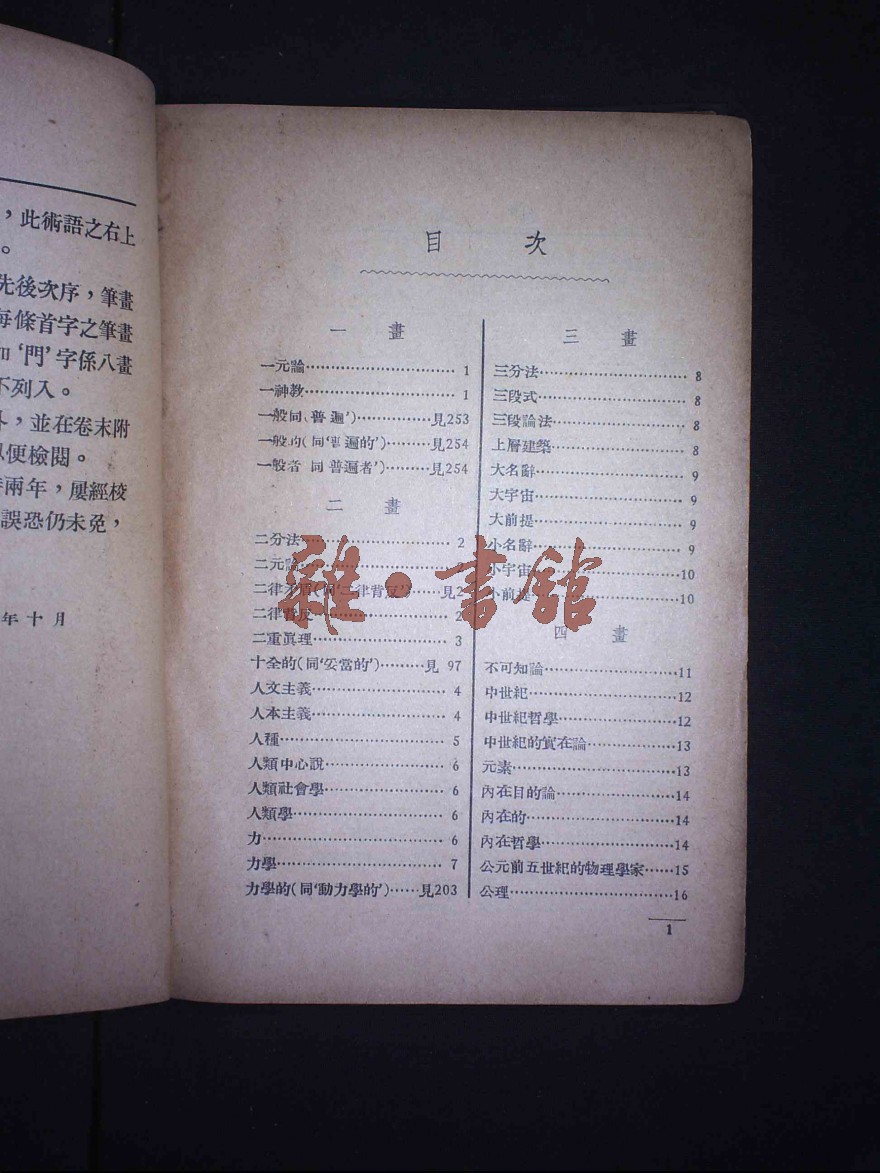 ，此術語之右上
。
先後次序，筆畫
每條首字之筆畫
如‘門’字係八畫
不列入。
外，並在卷末附
以便檢閱。
兩年，屢經校
誤恐仍未免，
年十月
目次
一畫
一元論……1
一神教……1
一般同‘普遍’)……見253
一般的(同‘普遍的’)……見254
一般者 同普遍者’)……見254
二畫
二分法……2
二元論……
二律矛盾(同‘二律背反’)……見2
二律背反……2
二重眞理……3
十全的(同‘妥當的’)……見 97
人文主義……4
人本主義……4
人種……5
人類中心說……6
人類社會學……6
人類學……6
力……6
力學……7
力學的(同‘動力學的’)……見203
三畫
三分法……8
三段式……8
三段論法……8
上層建築……8
大名辭……9
大宇宙……9
大前提……9
小名辭……9
小宇宙……10
小前提……10
四畫
不可知論……11
中世紀……12
中世紀哲學……12
中世紀的實在論……13
元素……13
內在目的論……14
內在的……14
內在哲學……14
公元前五世紀的物理學家……15
公理……16
1
雜·書館